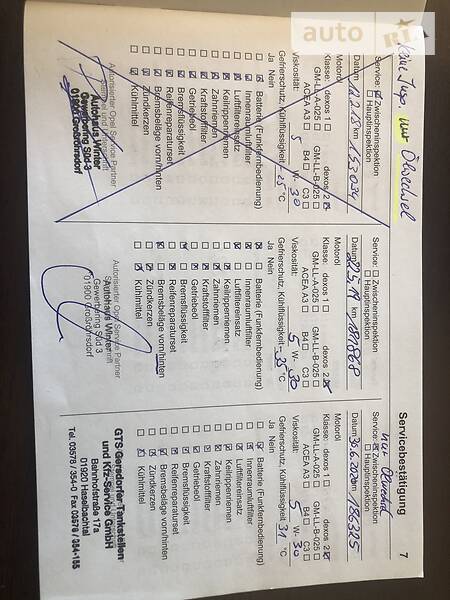 auto RIA
Servicebestätigung 7
keine Insp. nur Ölwechsel
Service: Zwischeninspektion
Hauptinspektion
Datum km 153034
Motoröl
Klasse: dexos 1 dexos 2
GM-LL-A-025 GM-LL-B-025
ACEA A3 B4 C3
Viskosität: 5 W- 30
Gefrierschutz, Kühlflüssigkeit -25 °C
Ja Nein
Batterie (Funkfernbedienung)
Innenraumluftfilter
Luftfiltereinsatz
Keilrippenriemen
Zahnriemen
Kraftstofffilter
Getriebeöl
Bremsflüssigkeit
Reifenreparaturset
Bremsbeläge vorn/hinten
Zündkerzen
Kühlmittel
Autorisierter Opel Service Partner
Autohaus Winter
Gewerbering Süd 3
01900 Großröhrsdorf
Service: Zwischeninspektion
Hauptinspektion
Datum 22.5.19 km 181868
Motoröl
Klasse: dexos 1 dexos 2
GM-LL-A-025 GM-LL-B-025
ACEA A3 B4 C3
Viskosität: 5 W- 30
Gefrierschutz, Kühlflüssigkeit -35 °C
Ja Nein
Batterie (Funkfernbedienung)
Innenraumluftfilter
Luftfiltereinsatz
Keilrippenriemen
Zahnriemen
Kraftstofffilter
Getriebeöl
Bremsflüssigkeit
Reifenreparaturset
Bremsbeläge vorn/hinten
Zündkerzen
Kühlmittel
Autorisierter Opel Service Partner
Autohaus Winter
Gewerbering Süd 3
01900 Großröhrsdorf
nur Ölwechsel
Service: Zwischeninspektion
Hauptinspektion
Datum 30.6.2020 km 186325
Motoröl
Klasse: dexos 1 dexos 2
GM-LL-A-025 GM-LL-B-025
ACEA A3 B4 C3
Viskosität: 5 W- 30
Gefrierschutz, Kühlflüssigkeit 31 °C
Ja Nein
Batterie (Funkfernbedienung)
Innenraumluftfilter
Luftfiltereinsatz
Keilrippenriemen
Zahnriemen
Kraftstofffilter
Getriebeöl
Bremsflüssigkeit
Reifenreparaturset
Bremsbeläge vorn/hinten
Zündkerzen
Kühlmittel
GTS Gersdorfer Tankstellen
und Kfz-Service GmbH
Bahnhofstraße 17a
01920 Haselbachtal
Tel. 03578 / 354-0 Fax 03578 / 354-155